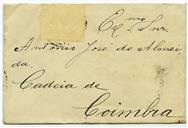 Exmo Snr.
António José de Almei
da.
Cadeia de
Coimbra